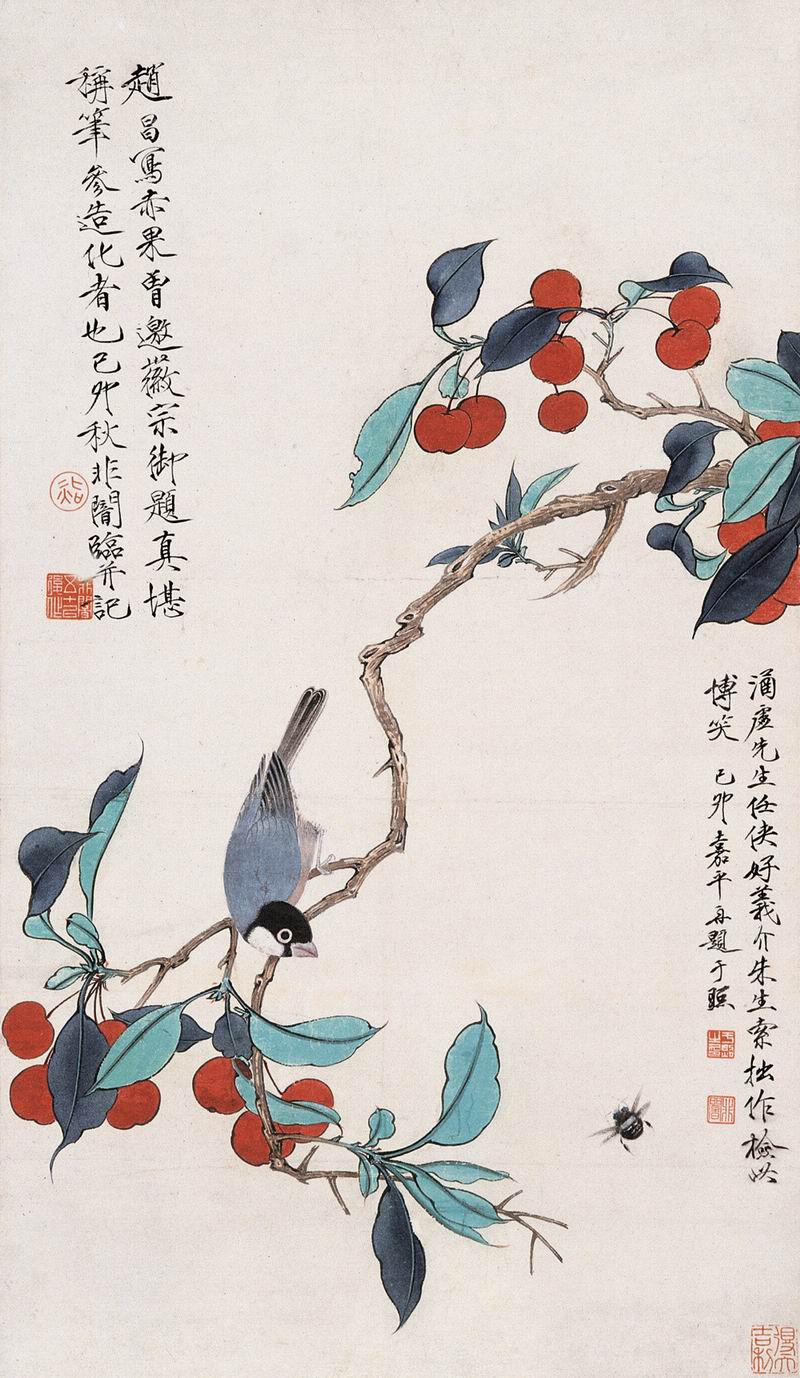 趙昌寫赤果曾邀薇宗御題真堪
稱筆參造化者也己卯秋非闇臨并記
涵虛先生任俠好義介朱生索拙作檢以
博笑 己卯嘉平再題于照